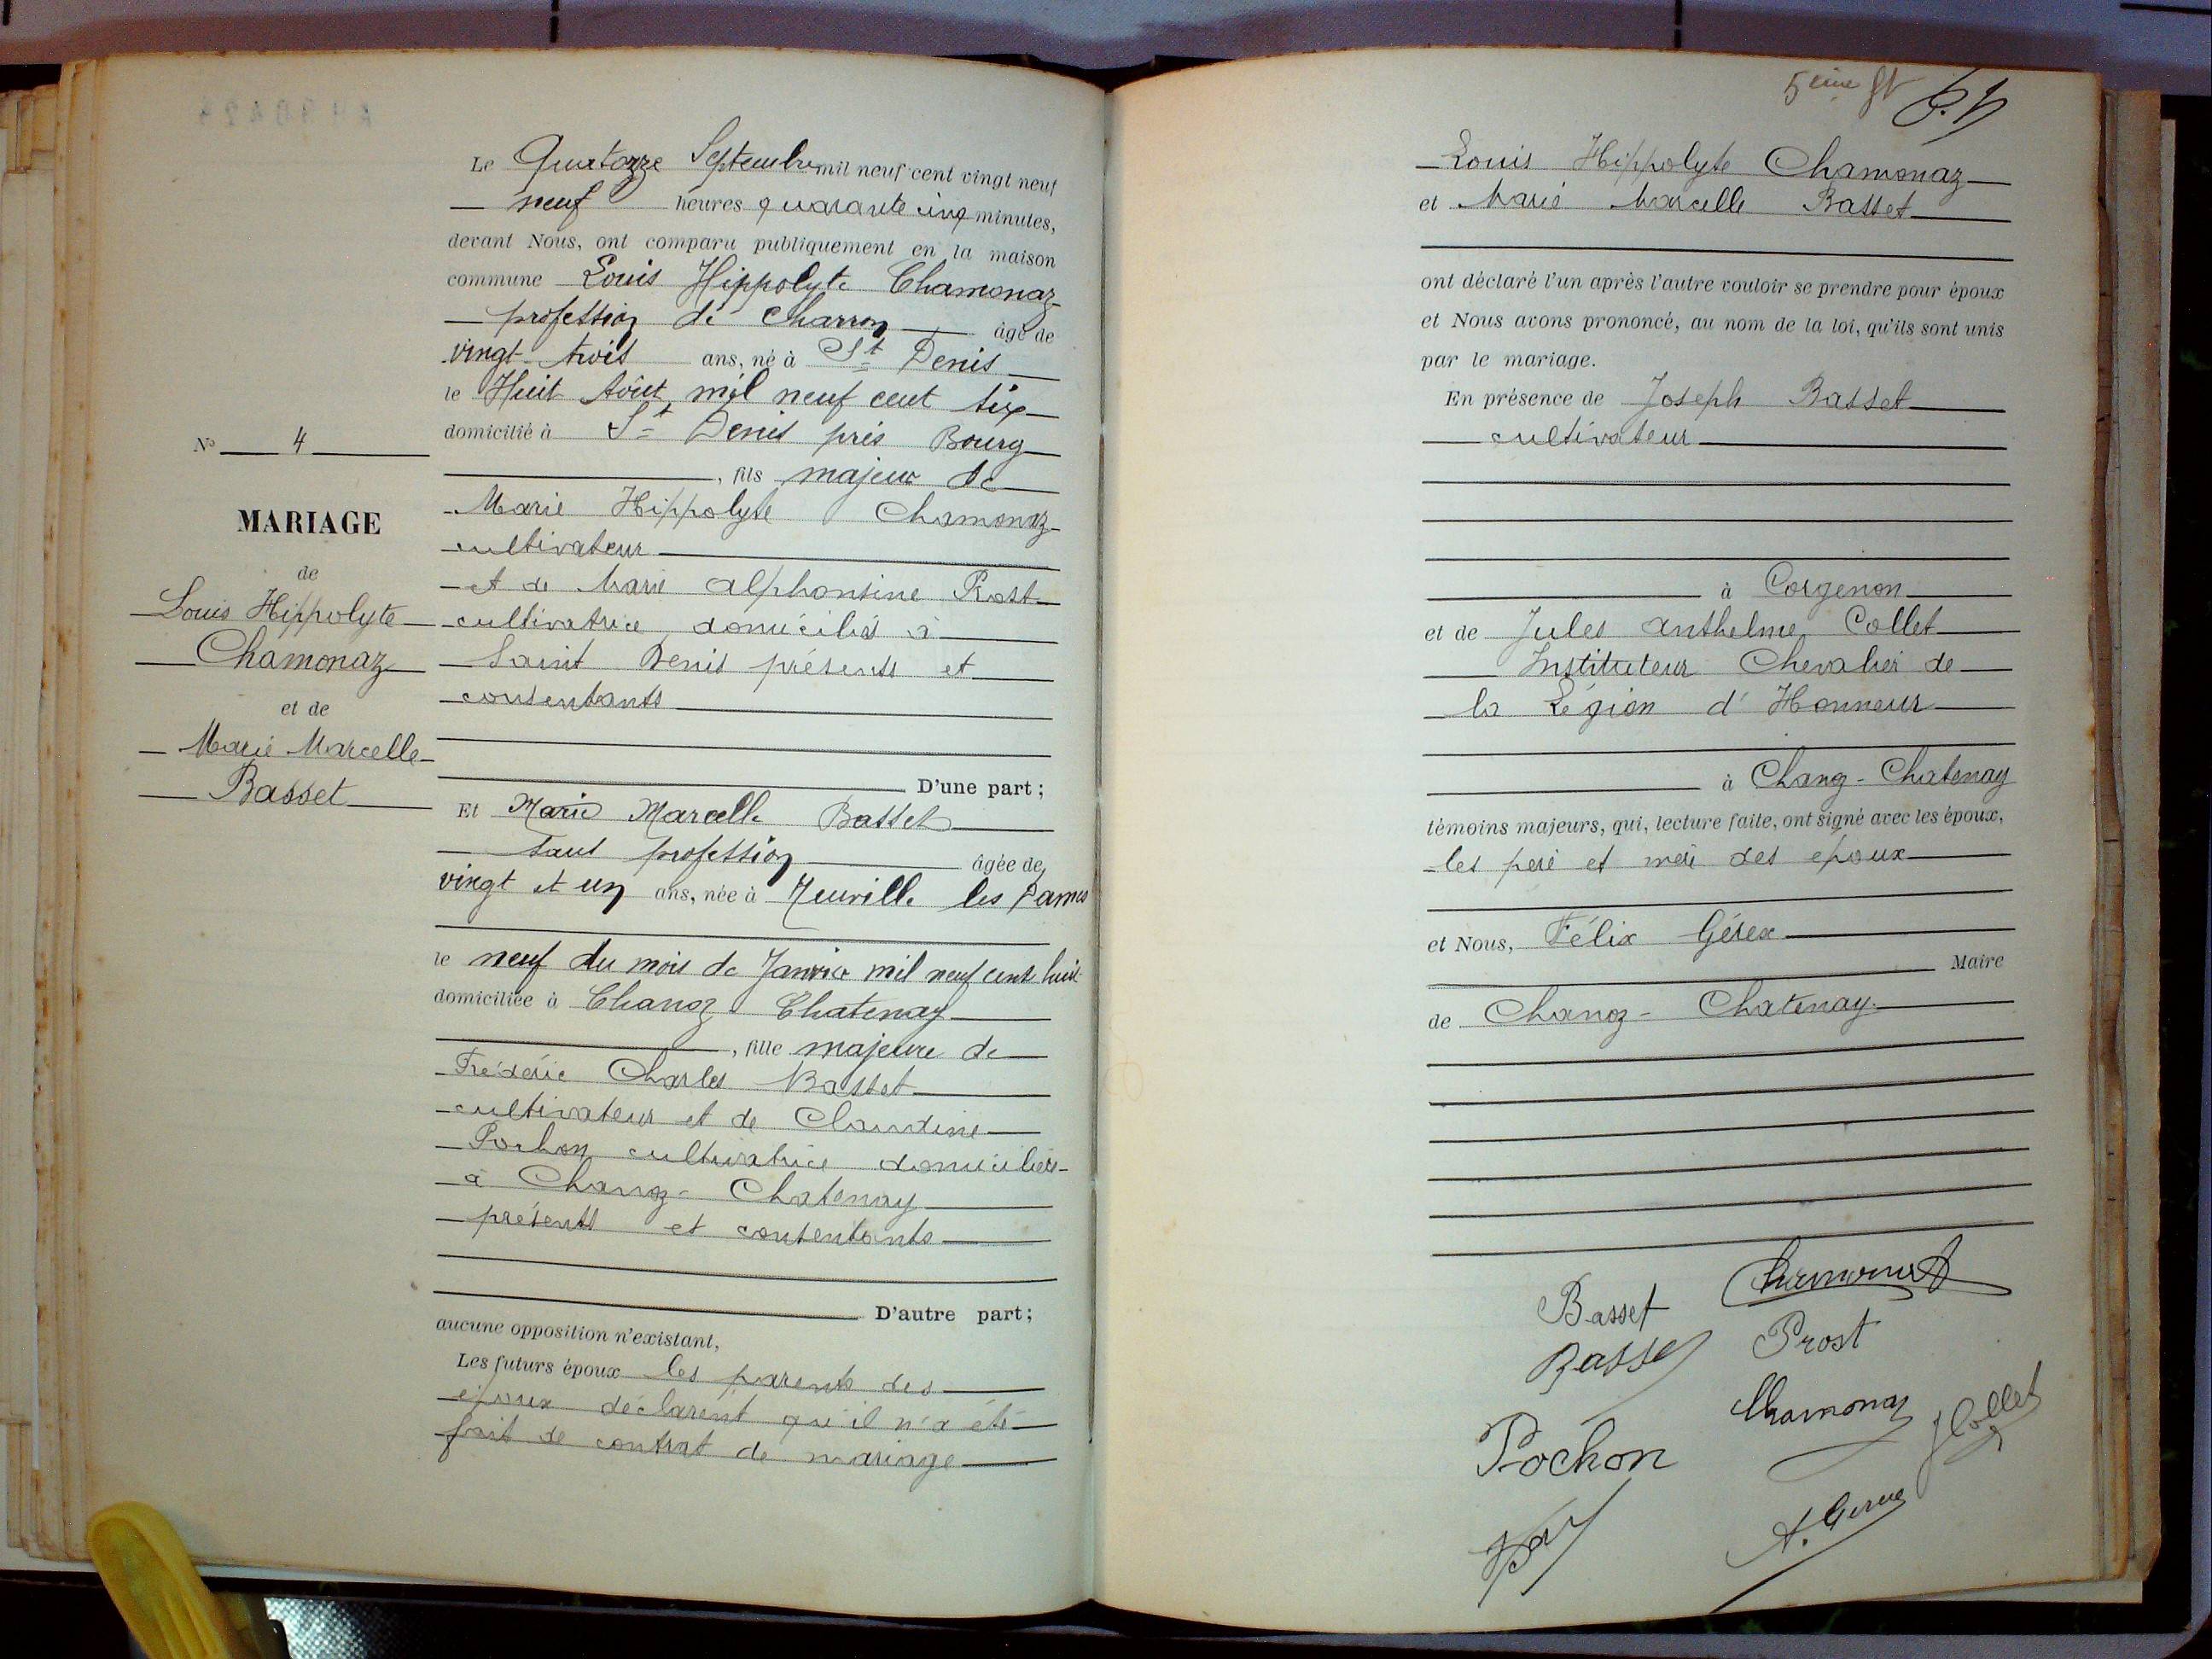 N° 4
MARIAGE
de
Louis Hippolyte
Chamonaz
et de
Marie Marcelle
Basset
Le Quatorze Septembre mil neuf cent vingt neuf
neuf heures quarante cinq minutes,
devant Nous, ont comparu publiquement en la maison
commune Louis Hippolyte Chamonaz
profession de Charron âgé de
vingt trois ans, né à St Denis
le Huit Août mil neuf cent six
domicilié à St Denis près Bourg
, fils majeur de
Marie Hippolyte Chamonaz
cultivateur
et de Marie Alphonsine Prost
cultivatrice domiciliés à
Saint Denis présents et
consentants
D'une part ;
Et Marie Marcelle Basset
sans profession âgée de
vingt et un ans, née à Neuville les Dames
le neuf du mois de Janvier mil neuf cent huit
domiciliée à Chanoz Chatenay
, fille majeure de
Frédéric Charles Basset
cultivateur et de Claudine
Pochon cultivatrice domiciliés
à Chanoz-Chatenay
présents et consentants
D'autre part ;
aucune opposition n'existant,
Les futurs époux les parents des
époux déclarent qu'il n'a été
fait de contrat de mariage
5ème ft
Louis Hippolyte Chamonaz
et Marie Marcelle Basset
ont déclaré l'un après l'autre vouloir se prendre pour époux
et Nous avons prononcé, au nom de la loi, qu'ils sont unis
par le mariage.
En présence de Joseph Basset
cultivateur
à Corgenon
et de Jules Anthelme Collet
Instituteur Chevalier de
la Légion d'Honneur
à Chanoz-Chatenay
témoins majeurs, qui, lecture faite, ont signé avec les époux,
les père et mère des époux
et Nous, Félix
Maire
de Chanoz-Chatenay
Basset
Basset Prost
Chamonaz JCollet
Pochon